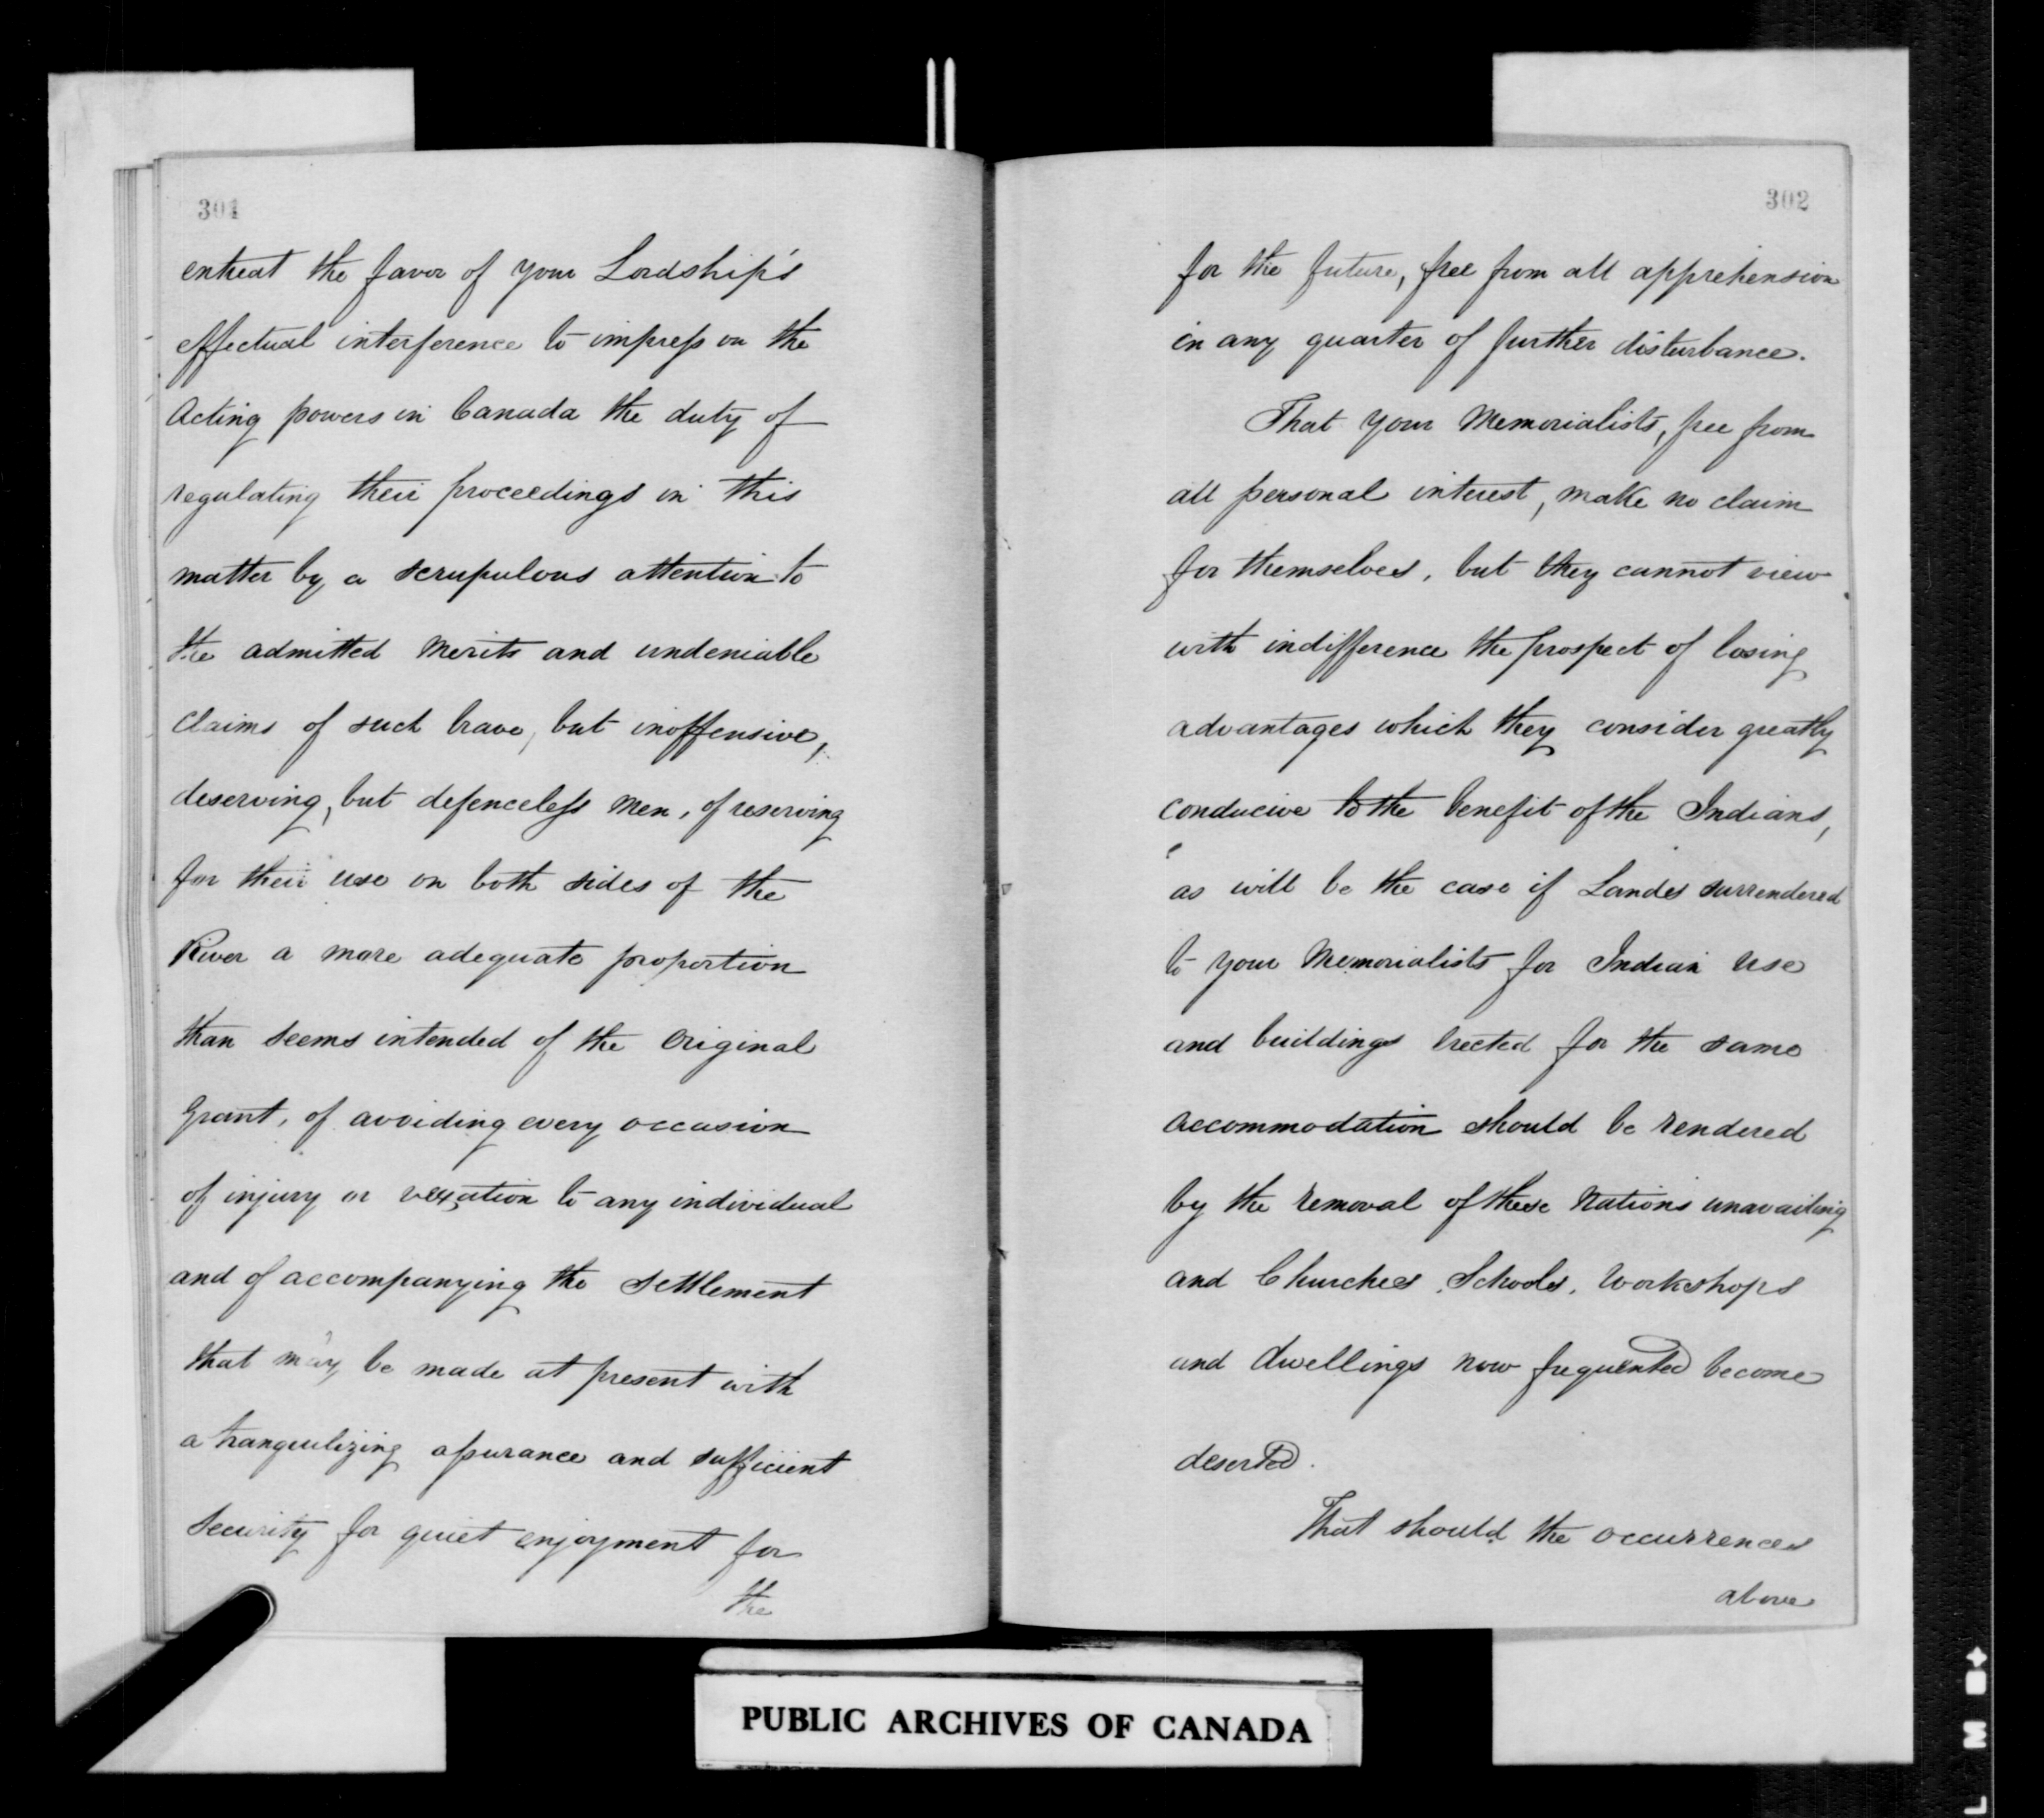 301
entreat the favor of your Lordship's
effectual interference to impress on the
Acting powers in Canada the duty of
regulating their proceedings in this
matter by a scrupulous attention to
the admitted merits and undeniable
claims of such brave, but inoffensive,
deserving, but defenceless men, of reserving
for their use on both sides of the
River a more adequate proportion
than seems intended of the original
Grant, of avoiding every occasion
of injury or vexation to any individual
and of accompanying the Settlement
that may be made at present with
a tranquilizing assurance and sufficient
security for quiet enjoyment for
the
302
for the future, free from all apprehension
in any quarter of further disturbance.
That your Memorialists, free from
all personal interest, make no claim
for themselves, but they cannot view
with indifference the prospect of losing
advantages which they consider greatly
conducive to the benefit of the Indians,
as will be the case if Landes surrendered
to your Memorialists for Indian use
and buildings erected for the same
accommodation should be rendered
by the removal of these Nations unavailing
and Churches, Schools, Workshops
and dwellings now frequented become
deserted.
That should the occurrences
above
PUBLIC ARCHIVES OF CANADA